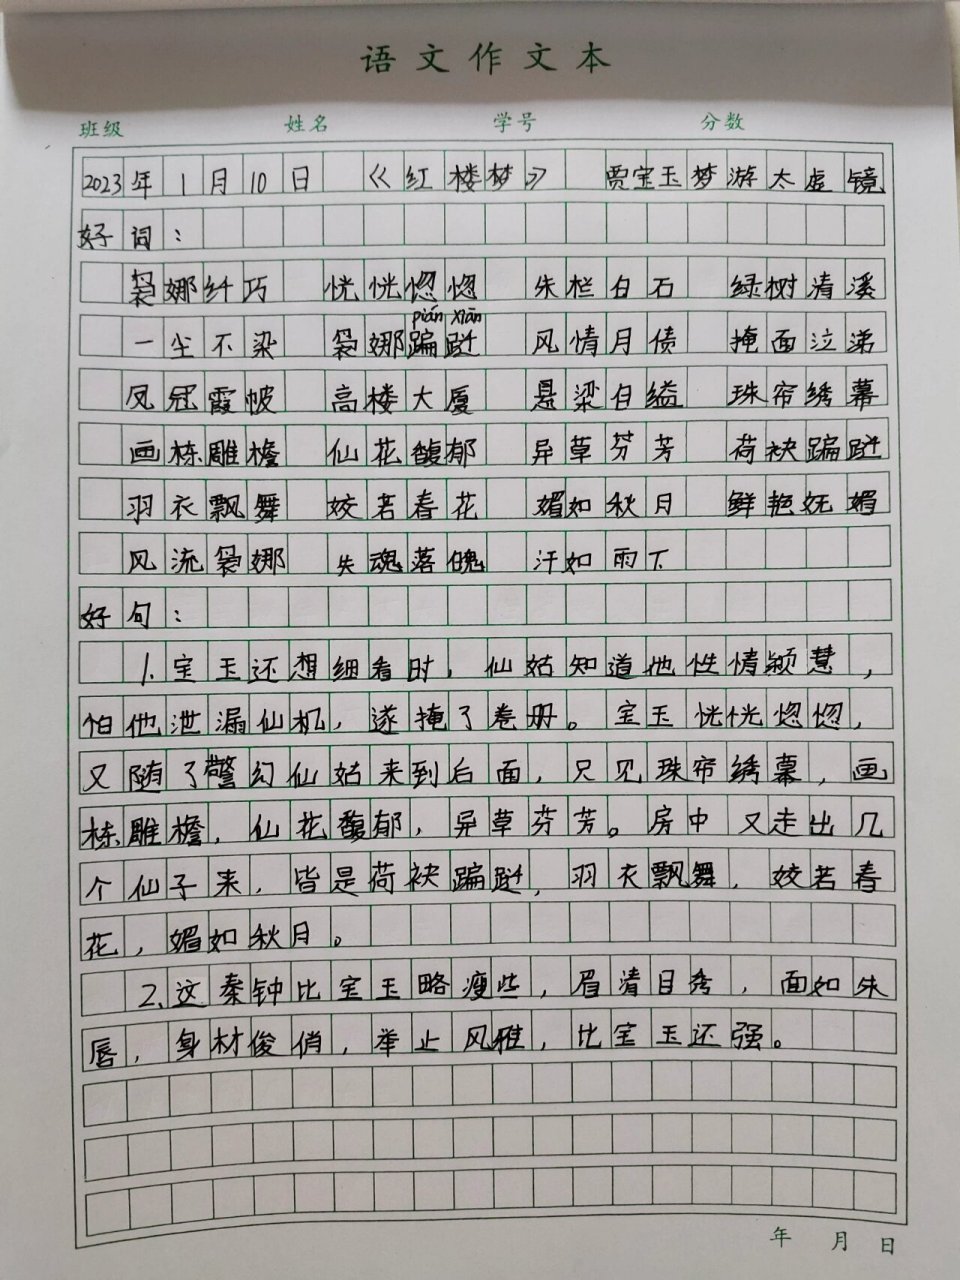 语文作文本
班级 姓名 学号 分数
2023年1月10日 《红楼梦》 贾宝玉梦游太虚镜
好词：
袅娜纤巧 恍恍惚惚 朱栏白石 绿树清溪
pián xiān
一尘不染 袅娜蹁跹 风情月债 掩面泣涕
凤冠霞帔 高楼大厦 悬梁自缢 珠帘绣幕
画栋雕檐 仙花馥郁 异草芬芳 荷袂蹁跹
羽衣飘舞 姣若春花 媚如秋月 鲜艳妩媚
风流袅娜 失魂落魄 汗如雨下
好句：
1、宝玉还想细看时，仙姑知道他性情颖慧，
怕他泄漏仙机，遂掩了卷册。宝玉恍恍惚惚，
又随了警幻仙姑来到后面，只见珠帘绣幕，画
栋雕檐，仙花馥郁，异草芬芳。房中又走出几
个仙子来，皆是荷袂蹁跹，羽衣飘舞，姣若春
花，媚如秋月。
2、这秦钟比宝玉略瘦些，眉清目秀，面如朱
唇，身材俊俏，举止风雅，比宝玉还强。
年 月 日